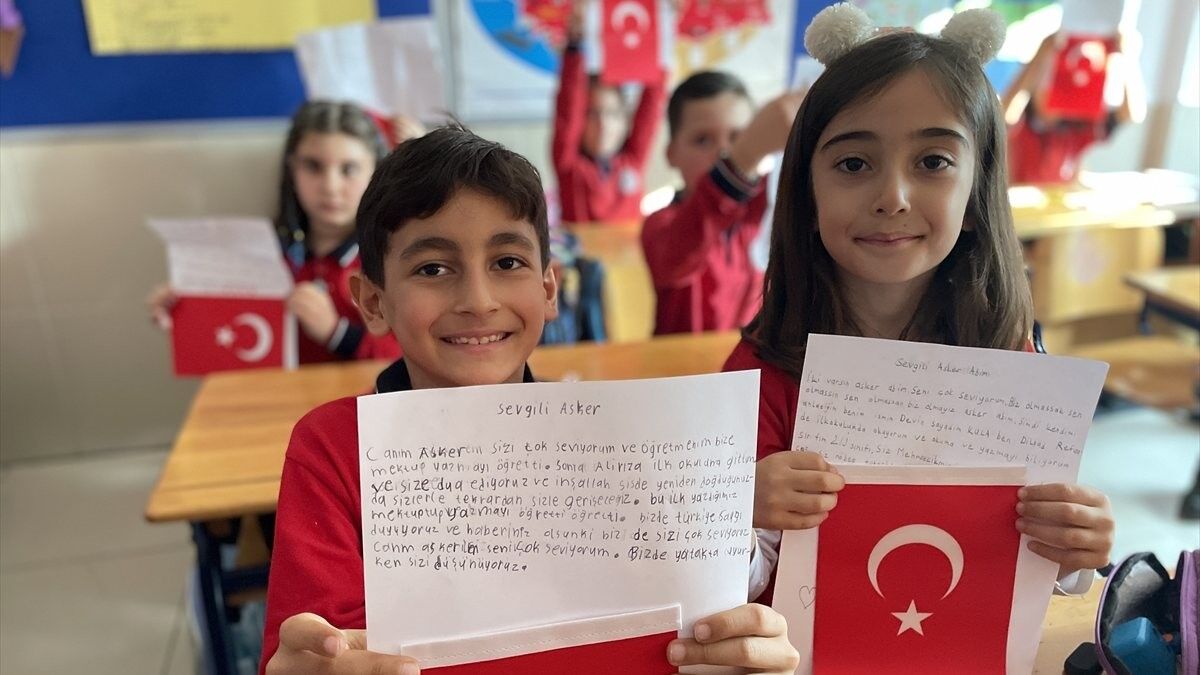 Sevgili Asker
Canım Askerem sizi çok seviyorum ve öğretmenim bize
mektup yazmayı öğretti. Sonra Aliriza ilk okuluna gittim
ve size dua ediyoruz ve inşallah sisde yeniden doğduğunuz-
da sizlerle tekrardan sizle geriseceğiz. bu ilk yazdığımız
mektuptup yazmayı öğretti öğretti. bizde türkiye saygı
duyyoruz ve haberiniz olsunki bizi de sizi çok seviyoruz
Canım askerim seni çok seviyorum. Bizde yatakta uyur-
ken sizi düşünüyoruz.
Sevgili Asker Abim
İki varsın asker abim. Seni çok seviyorum. Biz olmassak sen
olmassın sen olmassan biz olmayız asker abim. Şimdi kendimi
benim ismim Devin soyadım ben Dilbas
de ilkokulunda okuyorum ve okuma ve yazmayı biliyorum
sınıfım sınıfı, Siz